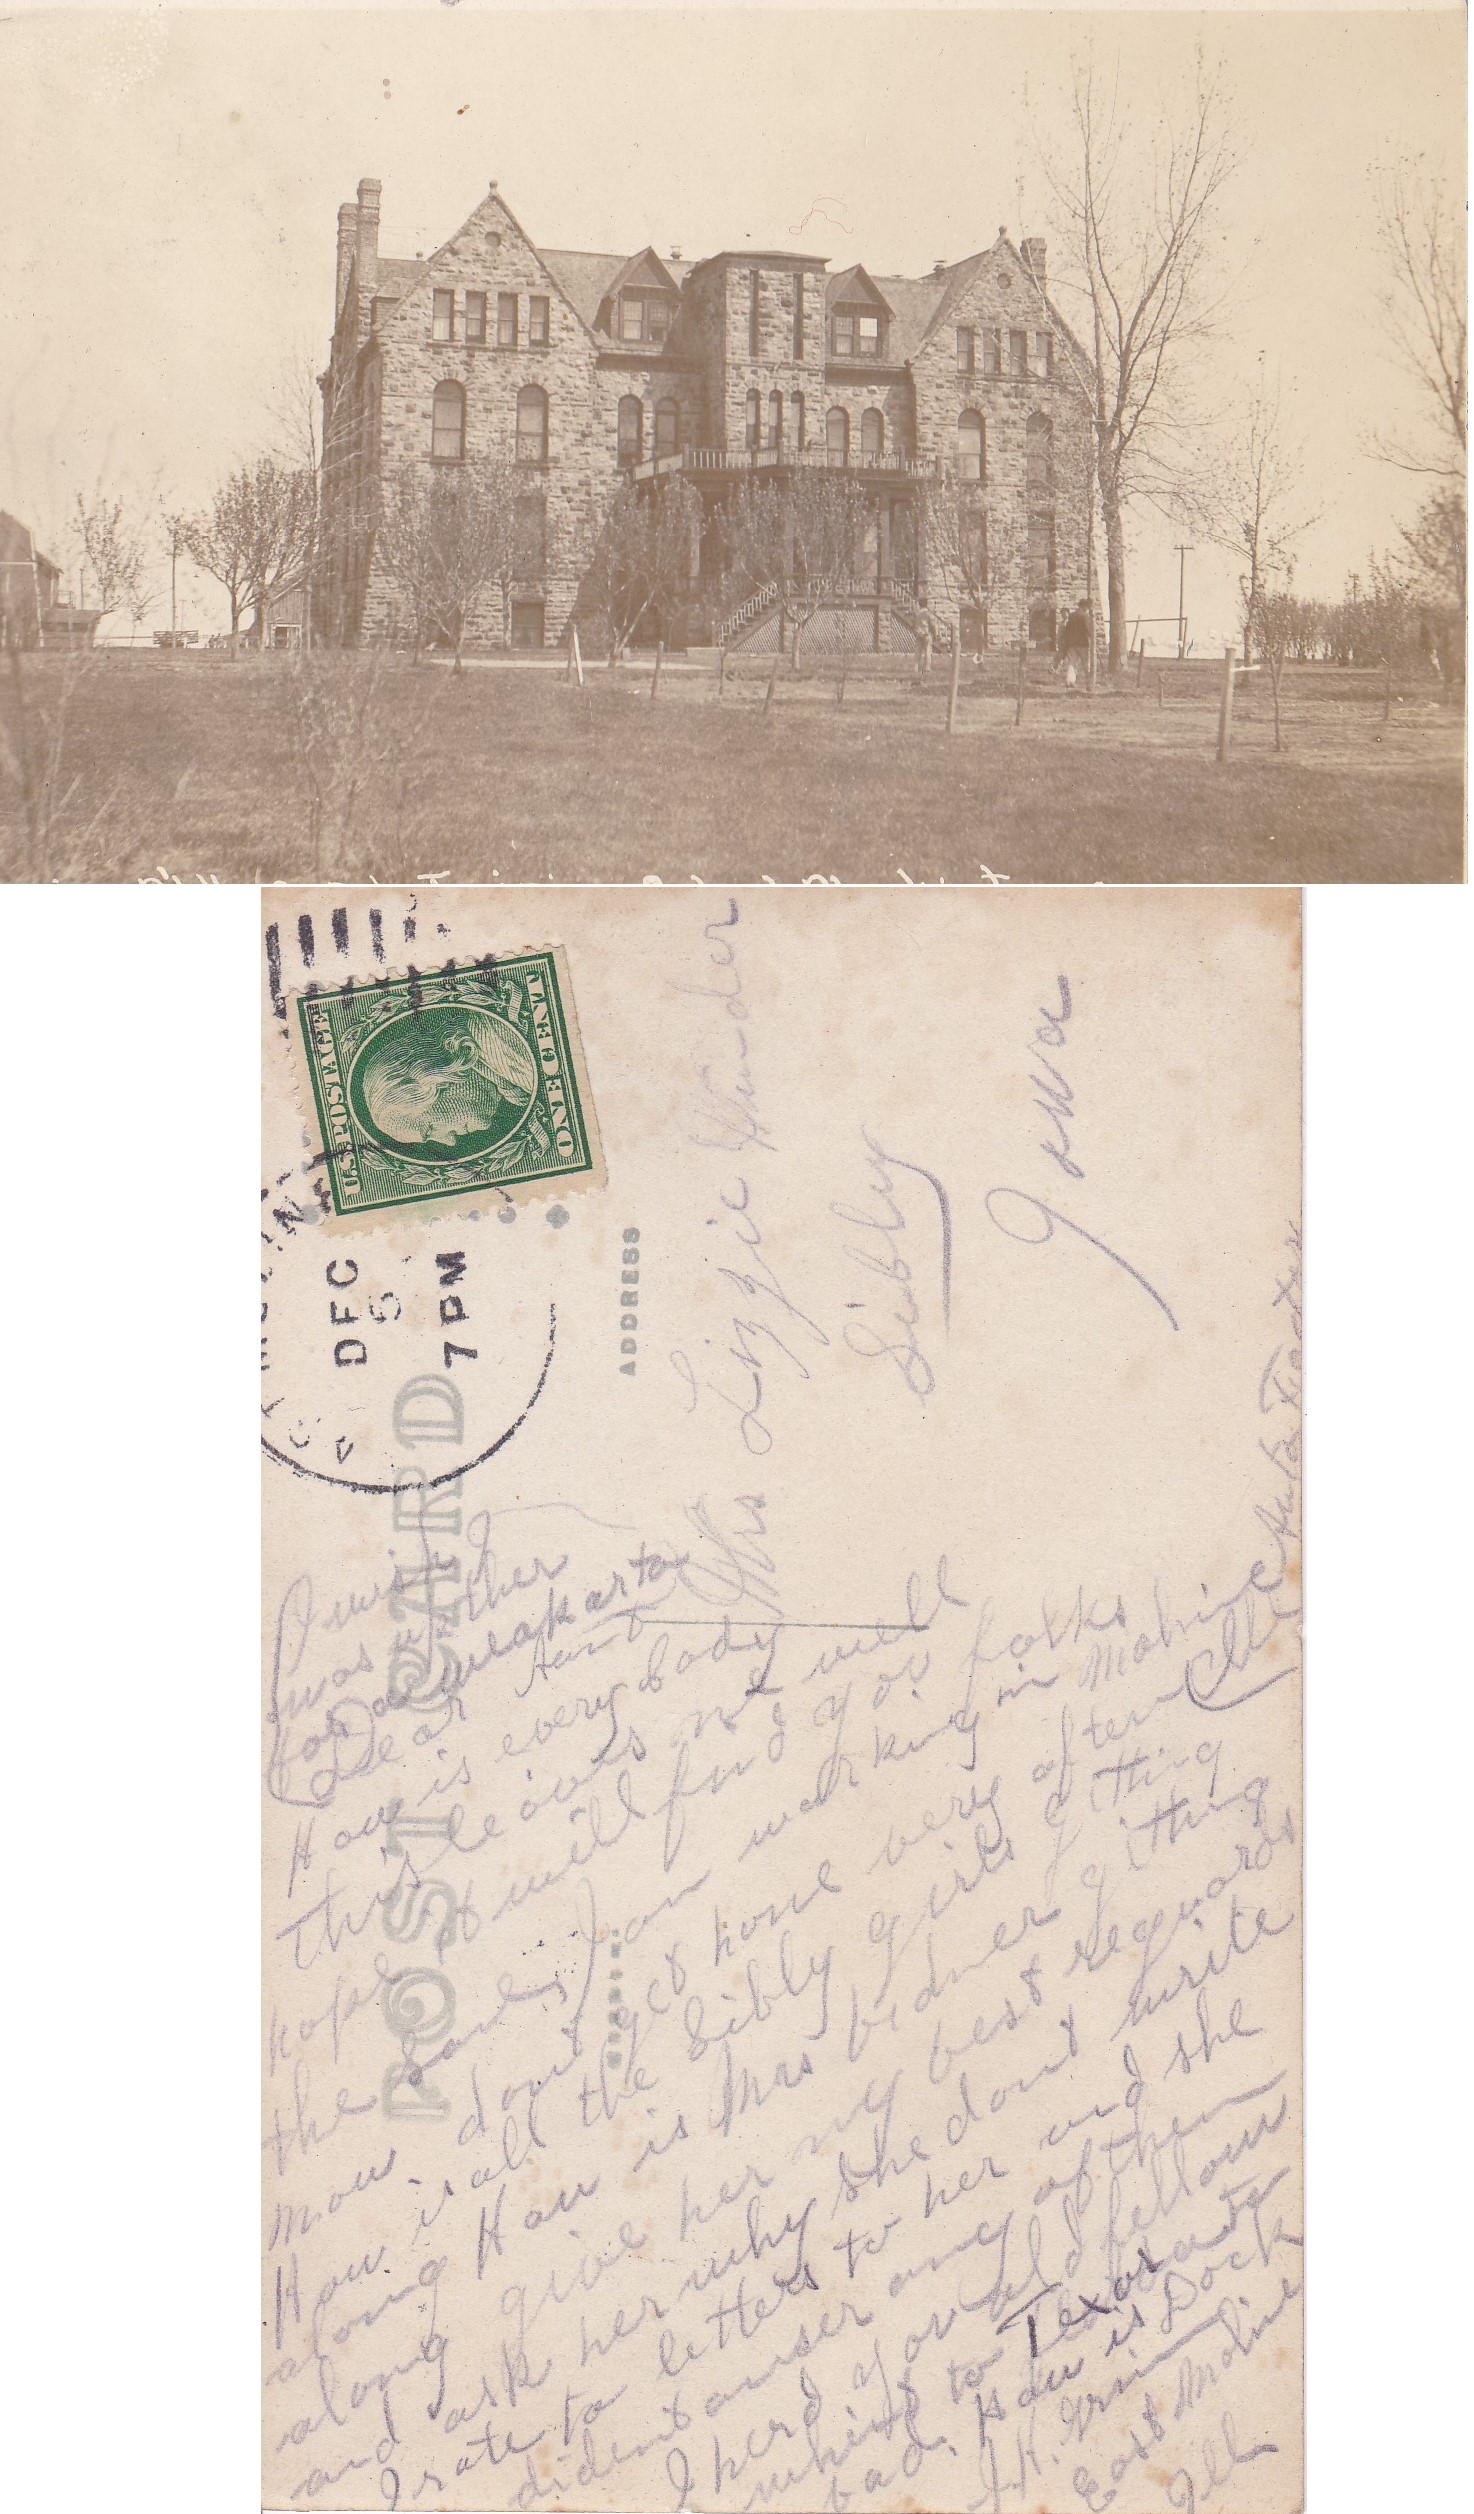 U.S. POSTAGE
ONE CENT
DEC
5
7 PM
POST CARD
ADDRESS
Mrs Lizzie
Sibley
Iowa
I wish I
was up ther
for a weak or to
Dear Aunt
How is everybody
This leaves me well
hope it will find you folks
the same I am working in Moline
now. dont get home very often
How is all the Sibly girls gitting
along How is Mrs bidner gitting
along give her my best regards
and ask her why she dont write
I rote to letters to her and she
dident anser any of them
I herd you old fellow
whent to Texas
bad. How is Dock
East Moline
Ills